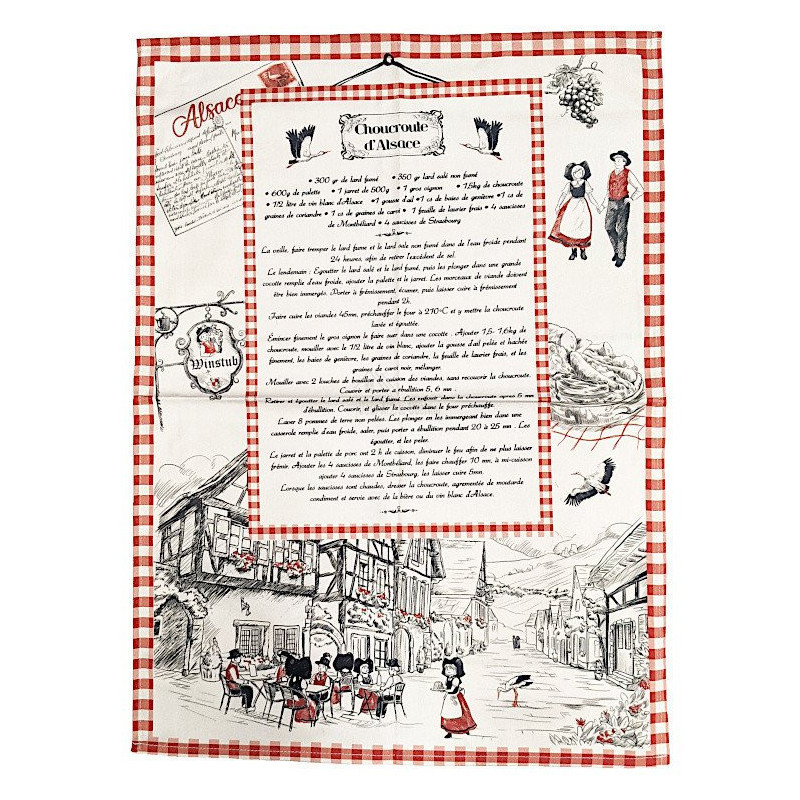 Alsace
Choucroute
d'Alsace
• 300 gr de lard fumé • 350 gr lard salé non fumé
• 600g de palette • 1 jarret de 800g • 1 gros oignon • 1,5kg de choucroute
• 1/2 litre de vin blanc d'Alsace • 1 gousse d'ail • 1 cs de baies de genièvre • 1 cs de
graines de coriandre • 1 cs de graines de carvi • 1 feuille de laurier frais • 4 saucisses
de Montbéliard • 4 saucisses de Strasbourg
La veille, faire tremper le lard fume et le lard sale non fumé dans de l'eau froide pendant
24 heures, afin de retirer l'excédent de sel.
Le lendemain : Egoutter le lard salé et le lard fumé, puis les plonger dans une grande
cocotte remplie d'eau froide, ajouter la palette et le jarret. Les morceaux de viande doivent
être bien immergés. Porter à frémissement, écumer, puis laisser cuire à frémissement
pendant 2h.
Faire cuire les viandes 45mn, préchauffer le four à 210°C et y mettre la choucroute
lavée et égouttée.
Émincer finement le gros oignon le faire suer dans une cocotte . Ajouter 1,5- 1,6kg de
choucroute, mouiller avec le 1/2 litre de vin blanc, ajouter la gousse d'ail pelée et hachée
finement, les baies de genièvre, les graines de coriandre, la feuille de laurier frais, et les
graines de carvi noir, mélanger.
Mouiller avec 2 louches de bouillon de cuisson des viandes, sans recouvrir la choucroute.
Couvrir et porter à ébullition 5, 6 mn .
Retirer et égoutter le lard salé et le lard fumé. Les enfouir dans la choucroute apres 5 mn
d'ébullition. Couvrir, et glisser la cocotte dans le four préchauffé.
Laver 8 pommes de terre non pelées. Les plonger en les immergeant bien dans une
casserole remplie d'eau froide, saler, puis porter a ébullition pendant 20 à 25 mn . Les
égoutter, et les peler.
Le jarret et la palette de porc ont 2 h de cuisson, diminuer le feu afin de ne plus laisser
frémir. Ajouter les 4 saucisses de Montbéliard, les faire chauffer 10 mn, à mi-cuisson
ajouter 4 saucisses de Strasbourg, les laisser cuire 5mn.
Lorsque les saucisses sont chaudes, dresser la choucroute, agrementée de moutarde
condiment et servie avec de la bière ou du vin blanc d'Alsace.
Winstub